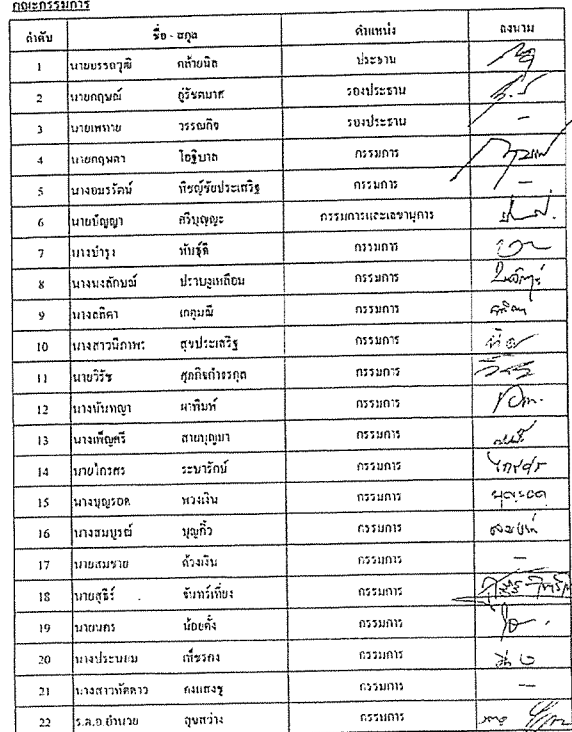 คณะกรรมการ
ลำดับ ชื่อ - สกุล ตำแหน่ง ลงนาม
1 นายบรรณวุฒิ กล้ายนิล ประธาน
2 นายกฤษณ์ รองประธาน
3 นายเพทาย วรรณกิจ รองประธาน -
4 นายกฤษดา โอฐิบาล กรรมการ
5 นางอมรรัตน์ พิชญ์ชัยประเสริฐ กรรมการ -
6 นายปัญญา ศรีบุญญะ กรรมการและเลขานุการ
7 นางบำรุง พันธุ์ดี กรรมการ
8 นางนงลักษณ์ ปราบงูเหลือม กรรมการ
9 นางลลิตา เกตุมณี กรรมการ
10 นางสาวนิภาพร สุขประเสริฐ กรรมการ
11 นายวิรัช ศุภกิจกำจรกุล กรรมการ
12 นางนันทญา ผาพิมพ์ กรรมการ
13 นางเพ็ญศรี สายบุญมา กรรมการ
14 นายไกรศร ระบารักษ์ กรรมการ ไกรศร
15 นางบุญรอด พวงเงิน กรรมการ บุญรอด
16 นางสมบูรณ์ บุญกิ้ว กรรมการ
17 นายสมชาย ด้วงเงิน กรรมการ -
18 นายสุธีร์ จันทร์เที่ยง กรรมการ
19 นายนคร น้อยตั้ง กรรมการ
20 นางประนอม เพ็ชรคง กรรมการ
21 นางสาวทัดดาว คงแสงชู กรรมการ -
22 ร.ต.อ.อำนวย อุนสว่าง กรรมการ